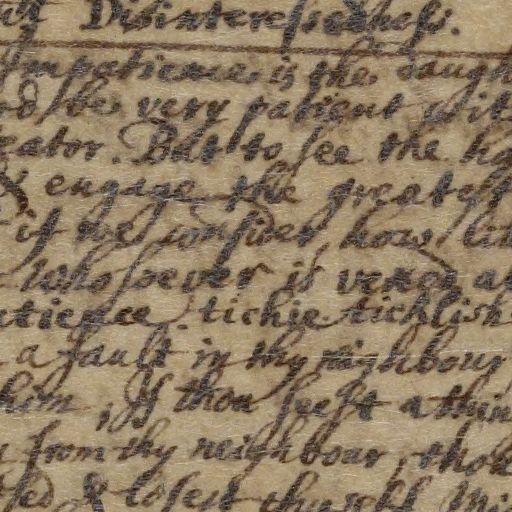 Disinteressedness.
Impatience, is the daugh
be very patient wit
eator. But to see the ha
& engage the greatest
if we consider, how lit
Whosoever is vexed at
atience. tichie. ticklish
a fault in thy neighbour
him, If thou seest a thin
from thy neighbour, thou
& losest thyself. Mi